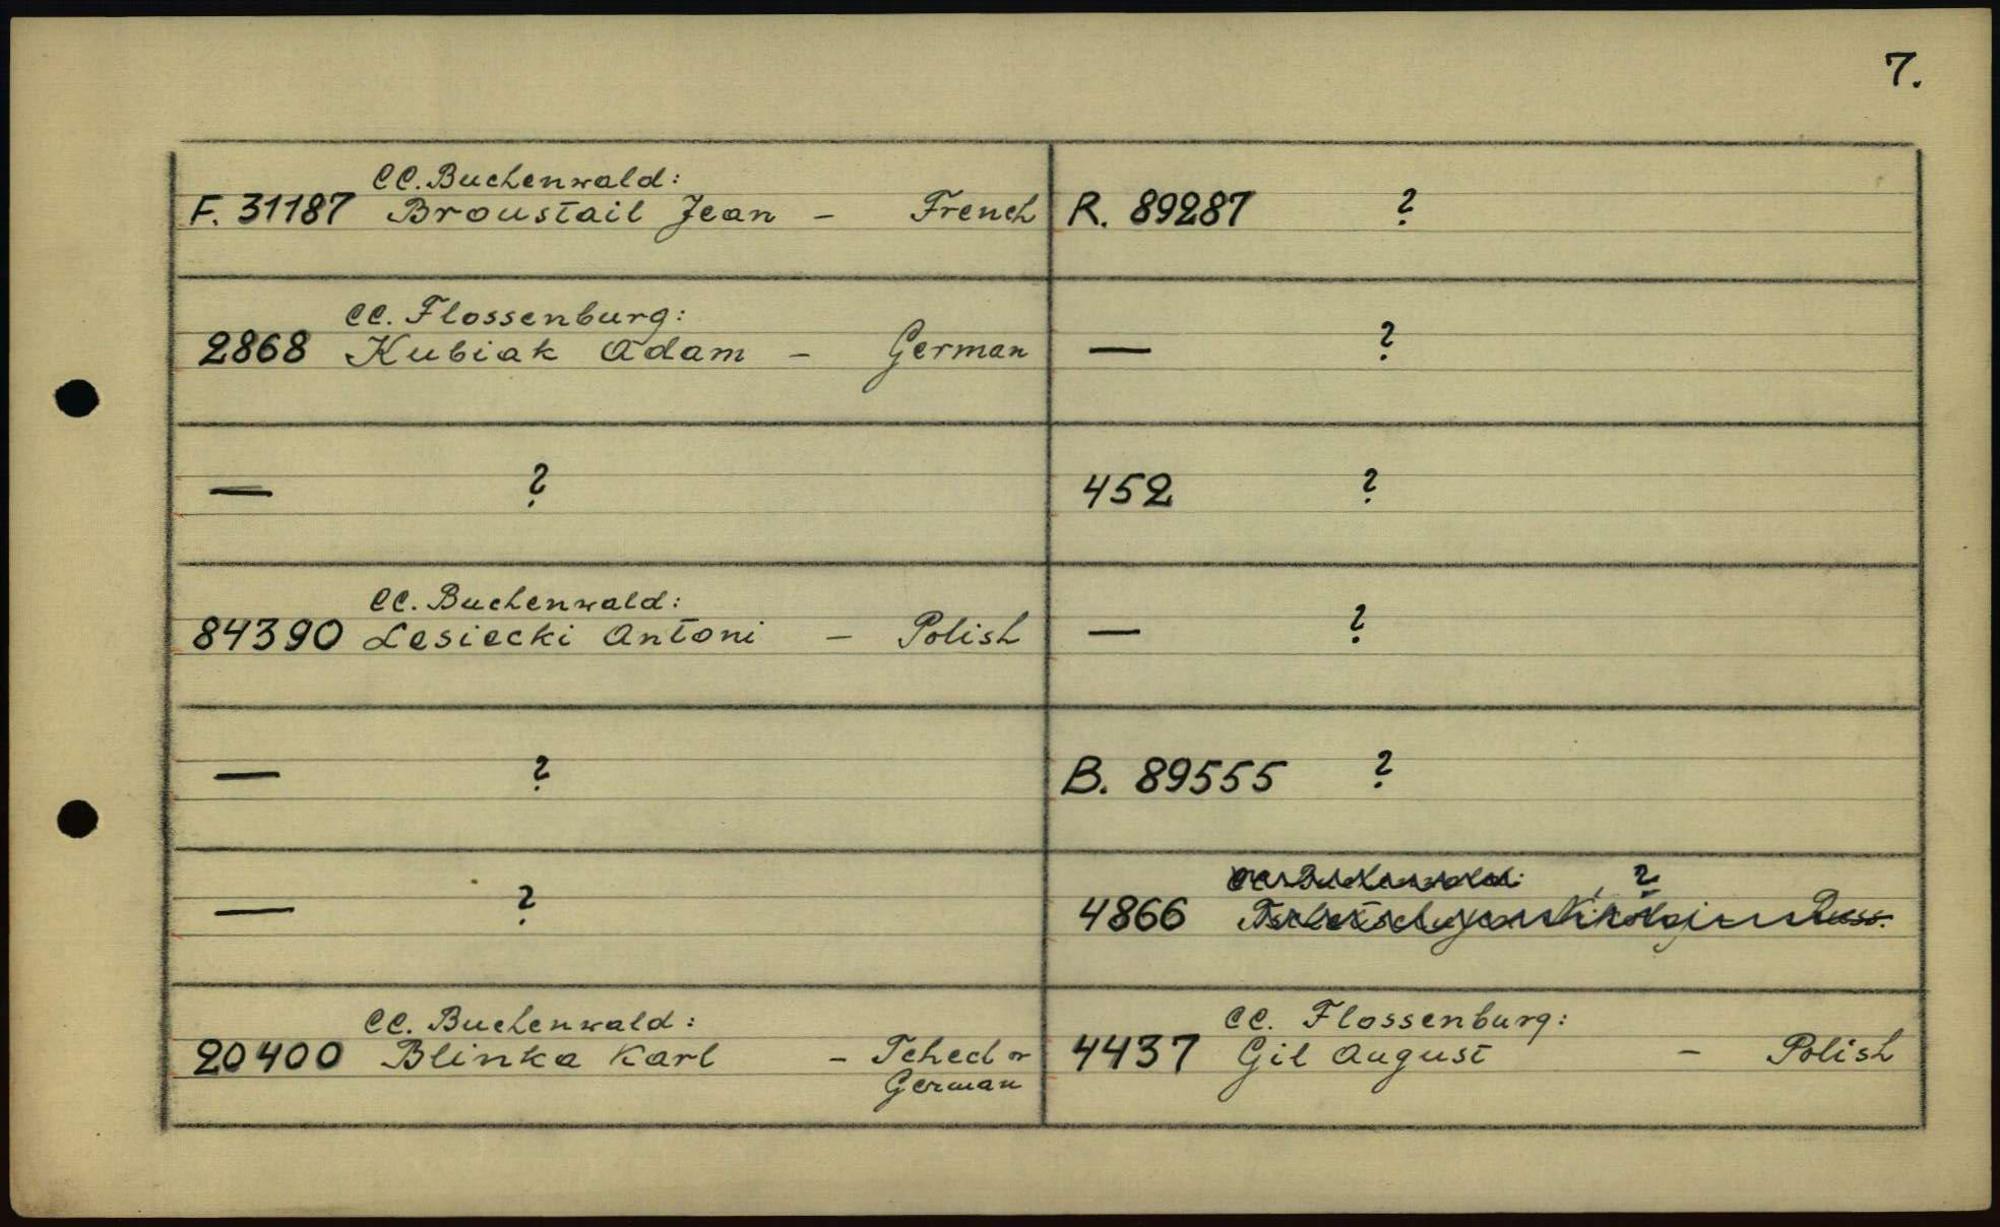 7.
CC. Buchenwald:
F. 31187 Broustail Jean - French
R. 89287 ?
CC. Flossenburg:
2868 Kubiak Adam - German
— ?
— ?
452 ?
CC. Buchenwald:
84390 Lesiecki Antoni - Polish
— ?
— ?
B. 89555 ?
— ?
?
4866 Russ.
CC. Buchenwald:
20400 Blinka Karl - Tchech or
German
CC. Flossenburg:
4437 Gil August - Polish